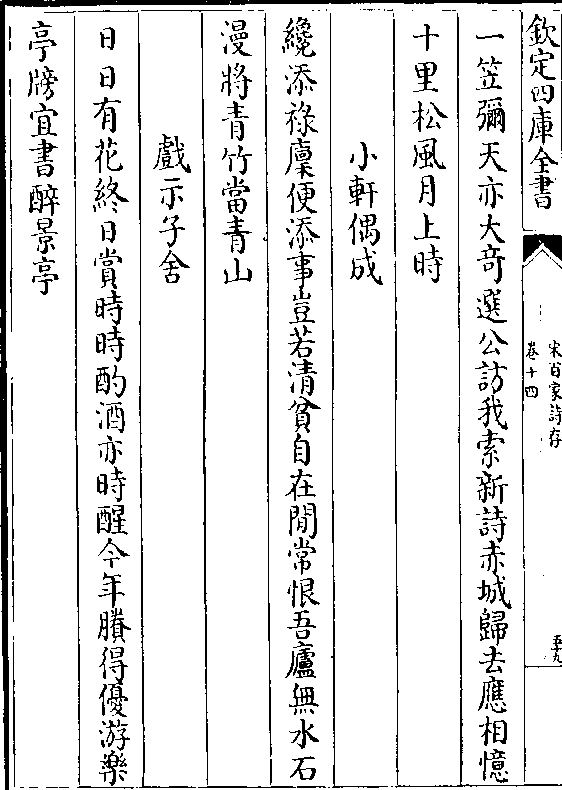 欽定四庫全書
宋百家詩存
卷十四
五十九
一笠彌天亦大竒選公訪我索新詩赤城歸去應相憶
十里松風月上時
小軒偶成
纔添祿廩便添事豈若清貧自在閒常恨吾廬無水石
漫將青竹當青山
戲示子舍
日日有花終日賞時時酌酒亦時醒今年賸得優游樂
亭牓宜書醉景亭